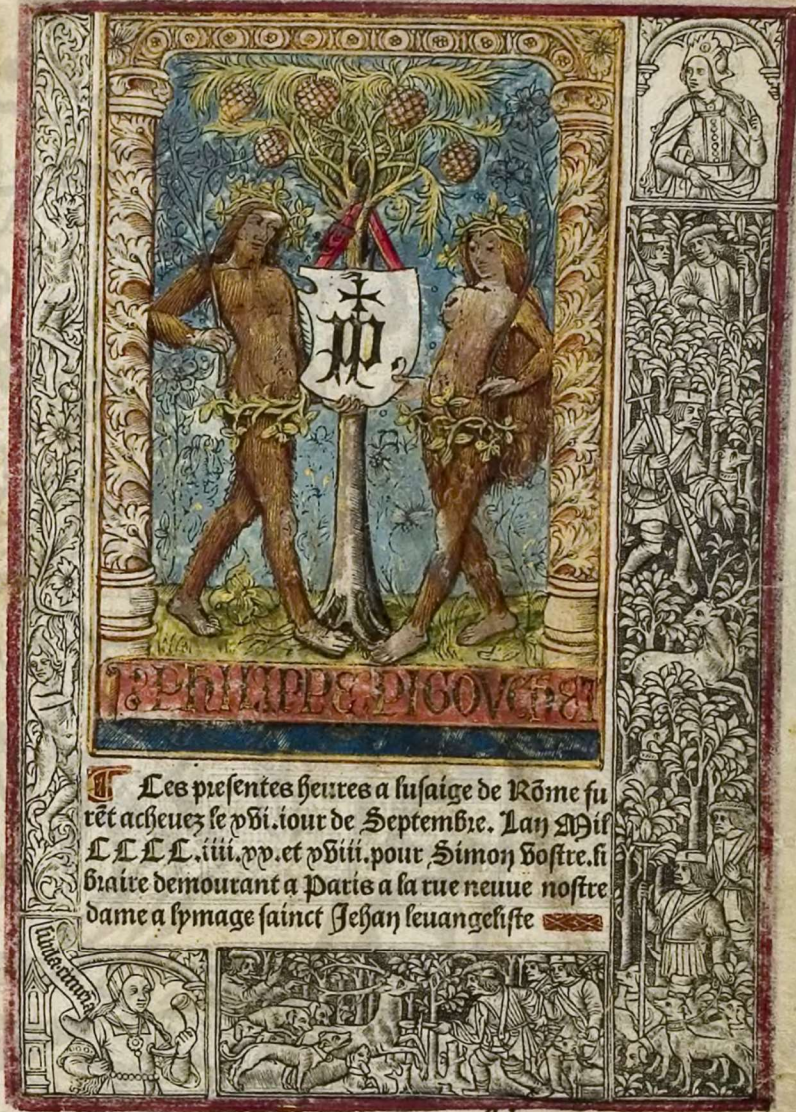 PP
PHILIPPE PIGOUCHET
Ces presentes heures a lusaige de Rõme fu
rẽt acheuez le xvi.iour de Septembre. Lan Mil
CCCC.iiii.xx.et xviii.pour Simon Vostre.li
braire demourant a Paris a la rue neuue nostre
dame a lymage sainct Jehan leuangeliste